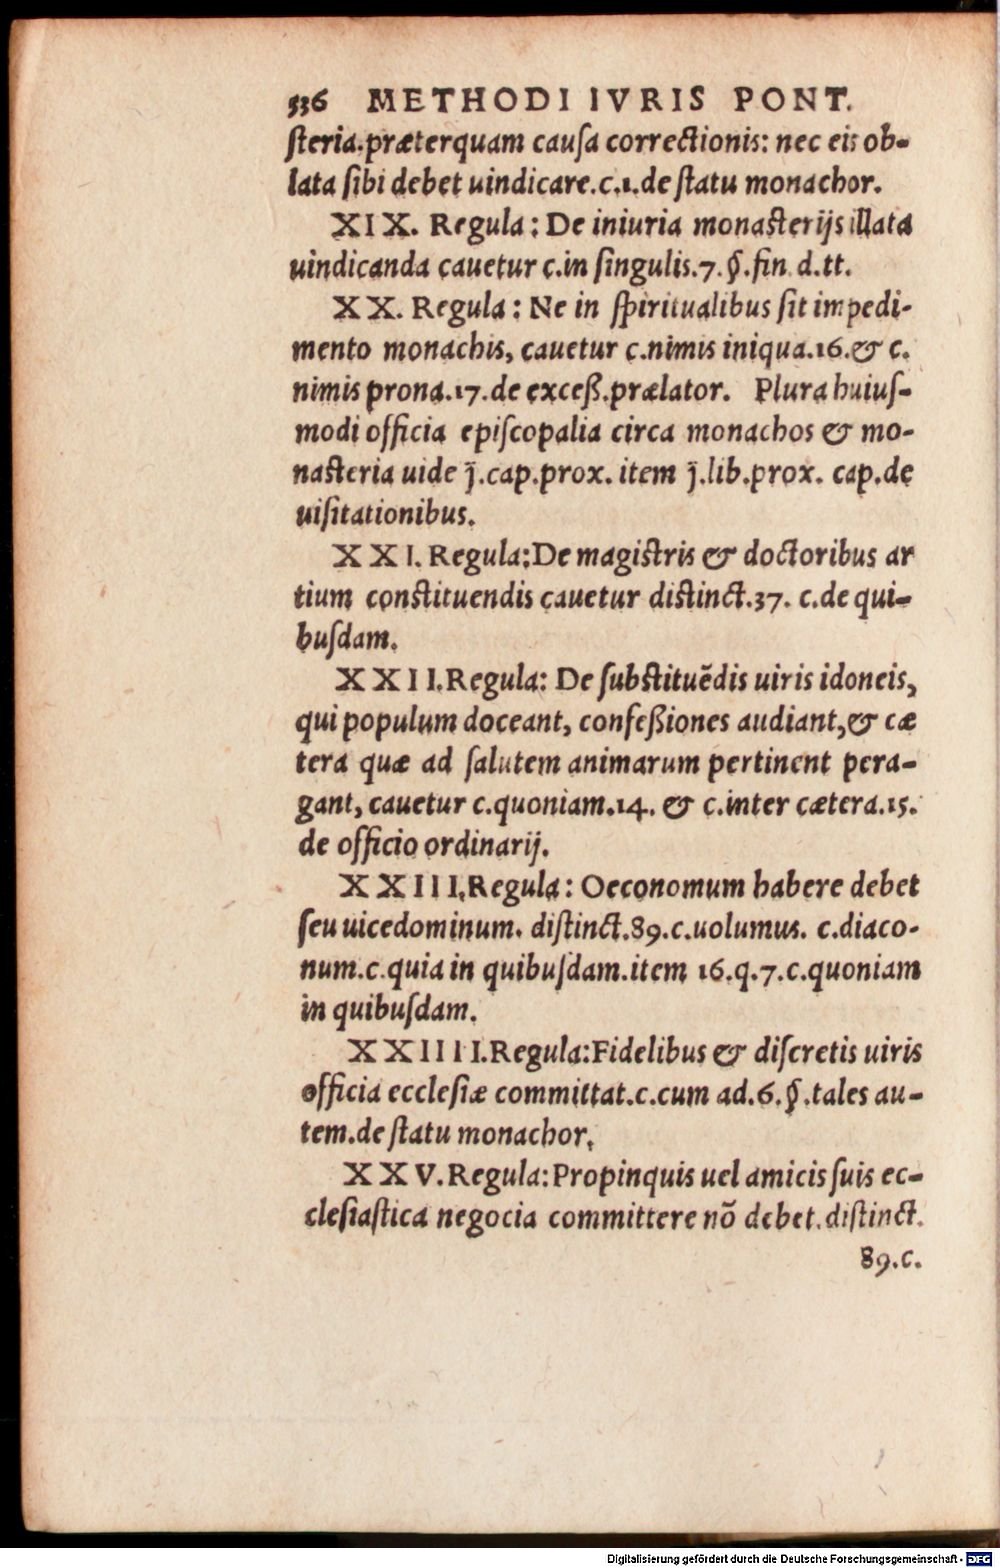 336 METHODI IVRIS PONT.
ſteria.præterquam cauſa correctionis: nec eis ob-
lata ſibi debet uindicare.c.1.de ſtatu monachor.
XIX. Regula: De iniuria monasterijs illata
uindicanda cauetur c.in ſingulis.7.§.fin d.tt.
XX. Regula: Ne in ſpiritualibus ſit impedi-
mento monachis, cauetur c.nimis iniqua.16.& c.
nimis prona.17.de exceß.prælator. Plura huiuſ-
modi officia epiſcopalia circa monachos & mo-
nasteria uide j̄.cap.prox. item j̄.lib.prox. cap.de
uiſitationibus.
XXI. Regula:De magistris & doctoribus ar
tium constituendis cauetur distinct.37. c.de qui-
buſdam.
XXII.Regula: De ſubstituēdis uiris idoneis,
qui populum doceant, confeßiones audiant,& cæ
tera quæ ad ſalutem animarum pertinent pera-
gant, cauetur c.quoniam.14. & c.inter cætera.15.
de officio ordinarij.
XXIII.Regula: Oeconomum habere debet
ſeu uicedominum. distinct.89.c.uolumus. c.diaco-
num.c.quia in quibuſdam.item 16.q.7.c.quoniam
in quibuſdam.
XXIIII.Regula:Fidelibus & diſcretis uiris
officia eccleſiæ committat.c.cum ad.6.§.tales au-
tem.de ſtatu monachor.
XXV.Regula:Propinquis uel amicis ſuis ec-
cleſiaſtica negocia committere nō debet.diſtinct.
89.c.
Digitalisierung gefördert durch die Deutsche Forschungsgemeinschaft - DFG